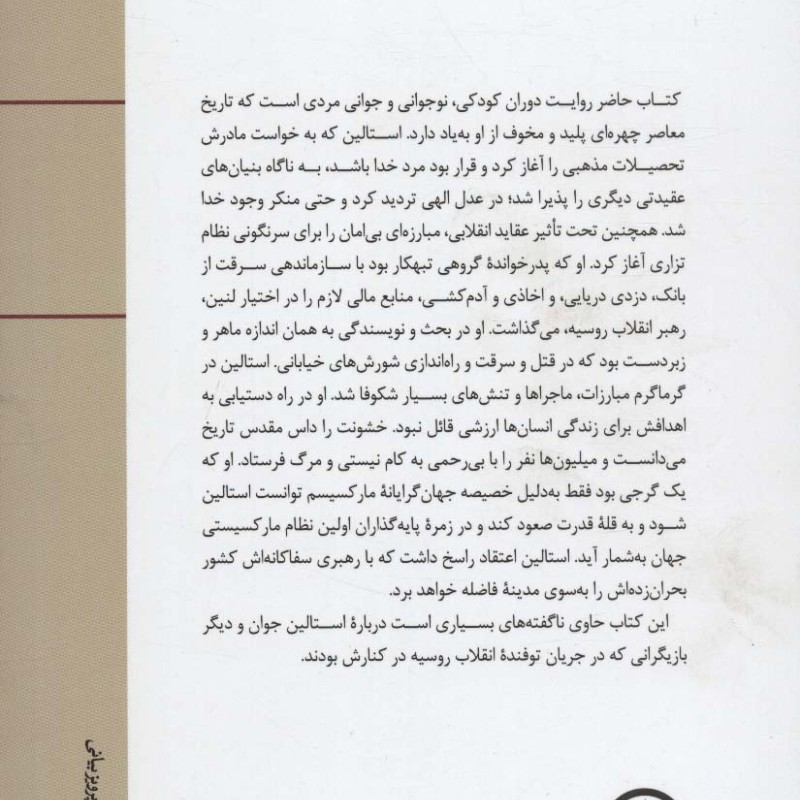 کتاب حاضر روایت دوران کودکی، نوجوانی و جوانی مردی است که تاریخ
معاصر چهره‌ای پلید و مخوف از او به‌یاد دارد. استالین که به خواست مادرش
تحصیلات مذهبی را آغاز کرد و قرار بود مرد خدا باشد، به ناگاه بنیان‌های
عقیدتی دیگری را پذیرا شد؛ در عدل الهی تردید کرد و حتی منکر وجود خدا
شد. همچنین تحت تأثیر عقاید انقلابی، مبارزه‌ای بی‌امان را برای سرنگونی نظام
تزاری آغاز کرد. او که پدرخواندهٔ گروهی تبهکار بود با سازماندهی سرقت از
بانک، دزدی دریایی، و اخاذی و آدم‌کشی، منابع مالی لازم را در اختیار لنین،
رهبر انقلاب روسیه، می‌گذاشت. او در بحث و نویسندگی به همان اندازه ماهر و
زبردست بود که در قتل و سرقت و راه‌اندازی شورش‌های خیابانی. استالین در
گرماگرم مبارزات، ماجراها و تنش‌های بسیار شکوفا شد. او در راه دستیابی به
اهدافش برای زندگی انسان‌ها ارزشی قائل نبود. خشونت را داس مقدس تاریخ
می‌دانست و میلیون‌ها نفر را با بی‌رحمی به کام نیستی و مرگ فرستاد. او که
یک گرجی بود فقط به‌دلیل خصیصه جهان‌گرایانهٔ مارکسیسم توانست استالین
شود و به قلهٔ قدرت صعود کند و در زمرهٔ پایه‌گذاران اولین نظام مارکسیستی
جهان به‌شمار آید. استالین اعتقاد راسخ داشت که با رهبری سفاکانه‌اش کشور
بحران‌زده‌اش را به‌سوی مدینهٔ فاضله خواهد برد.
این کتاب حاوی ناگفته‌های بسیاری است دربارهٔ استالین جوان و دیگر
بازیگرانی که در جریان توفندهٔ انقلاب روسیه در کنارش بودند.
پرویز بیاتی